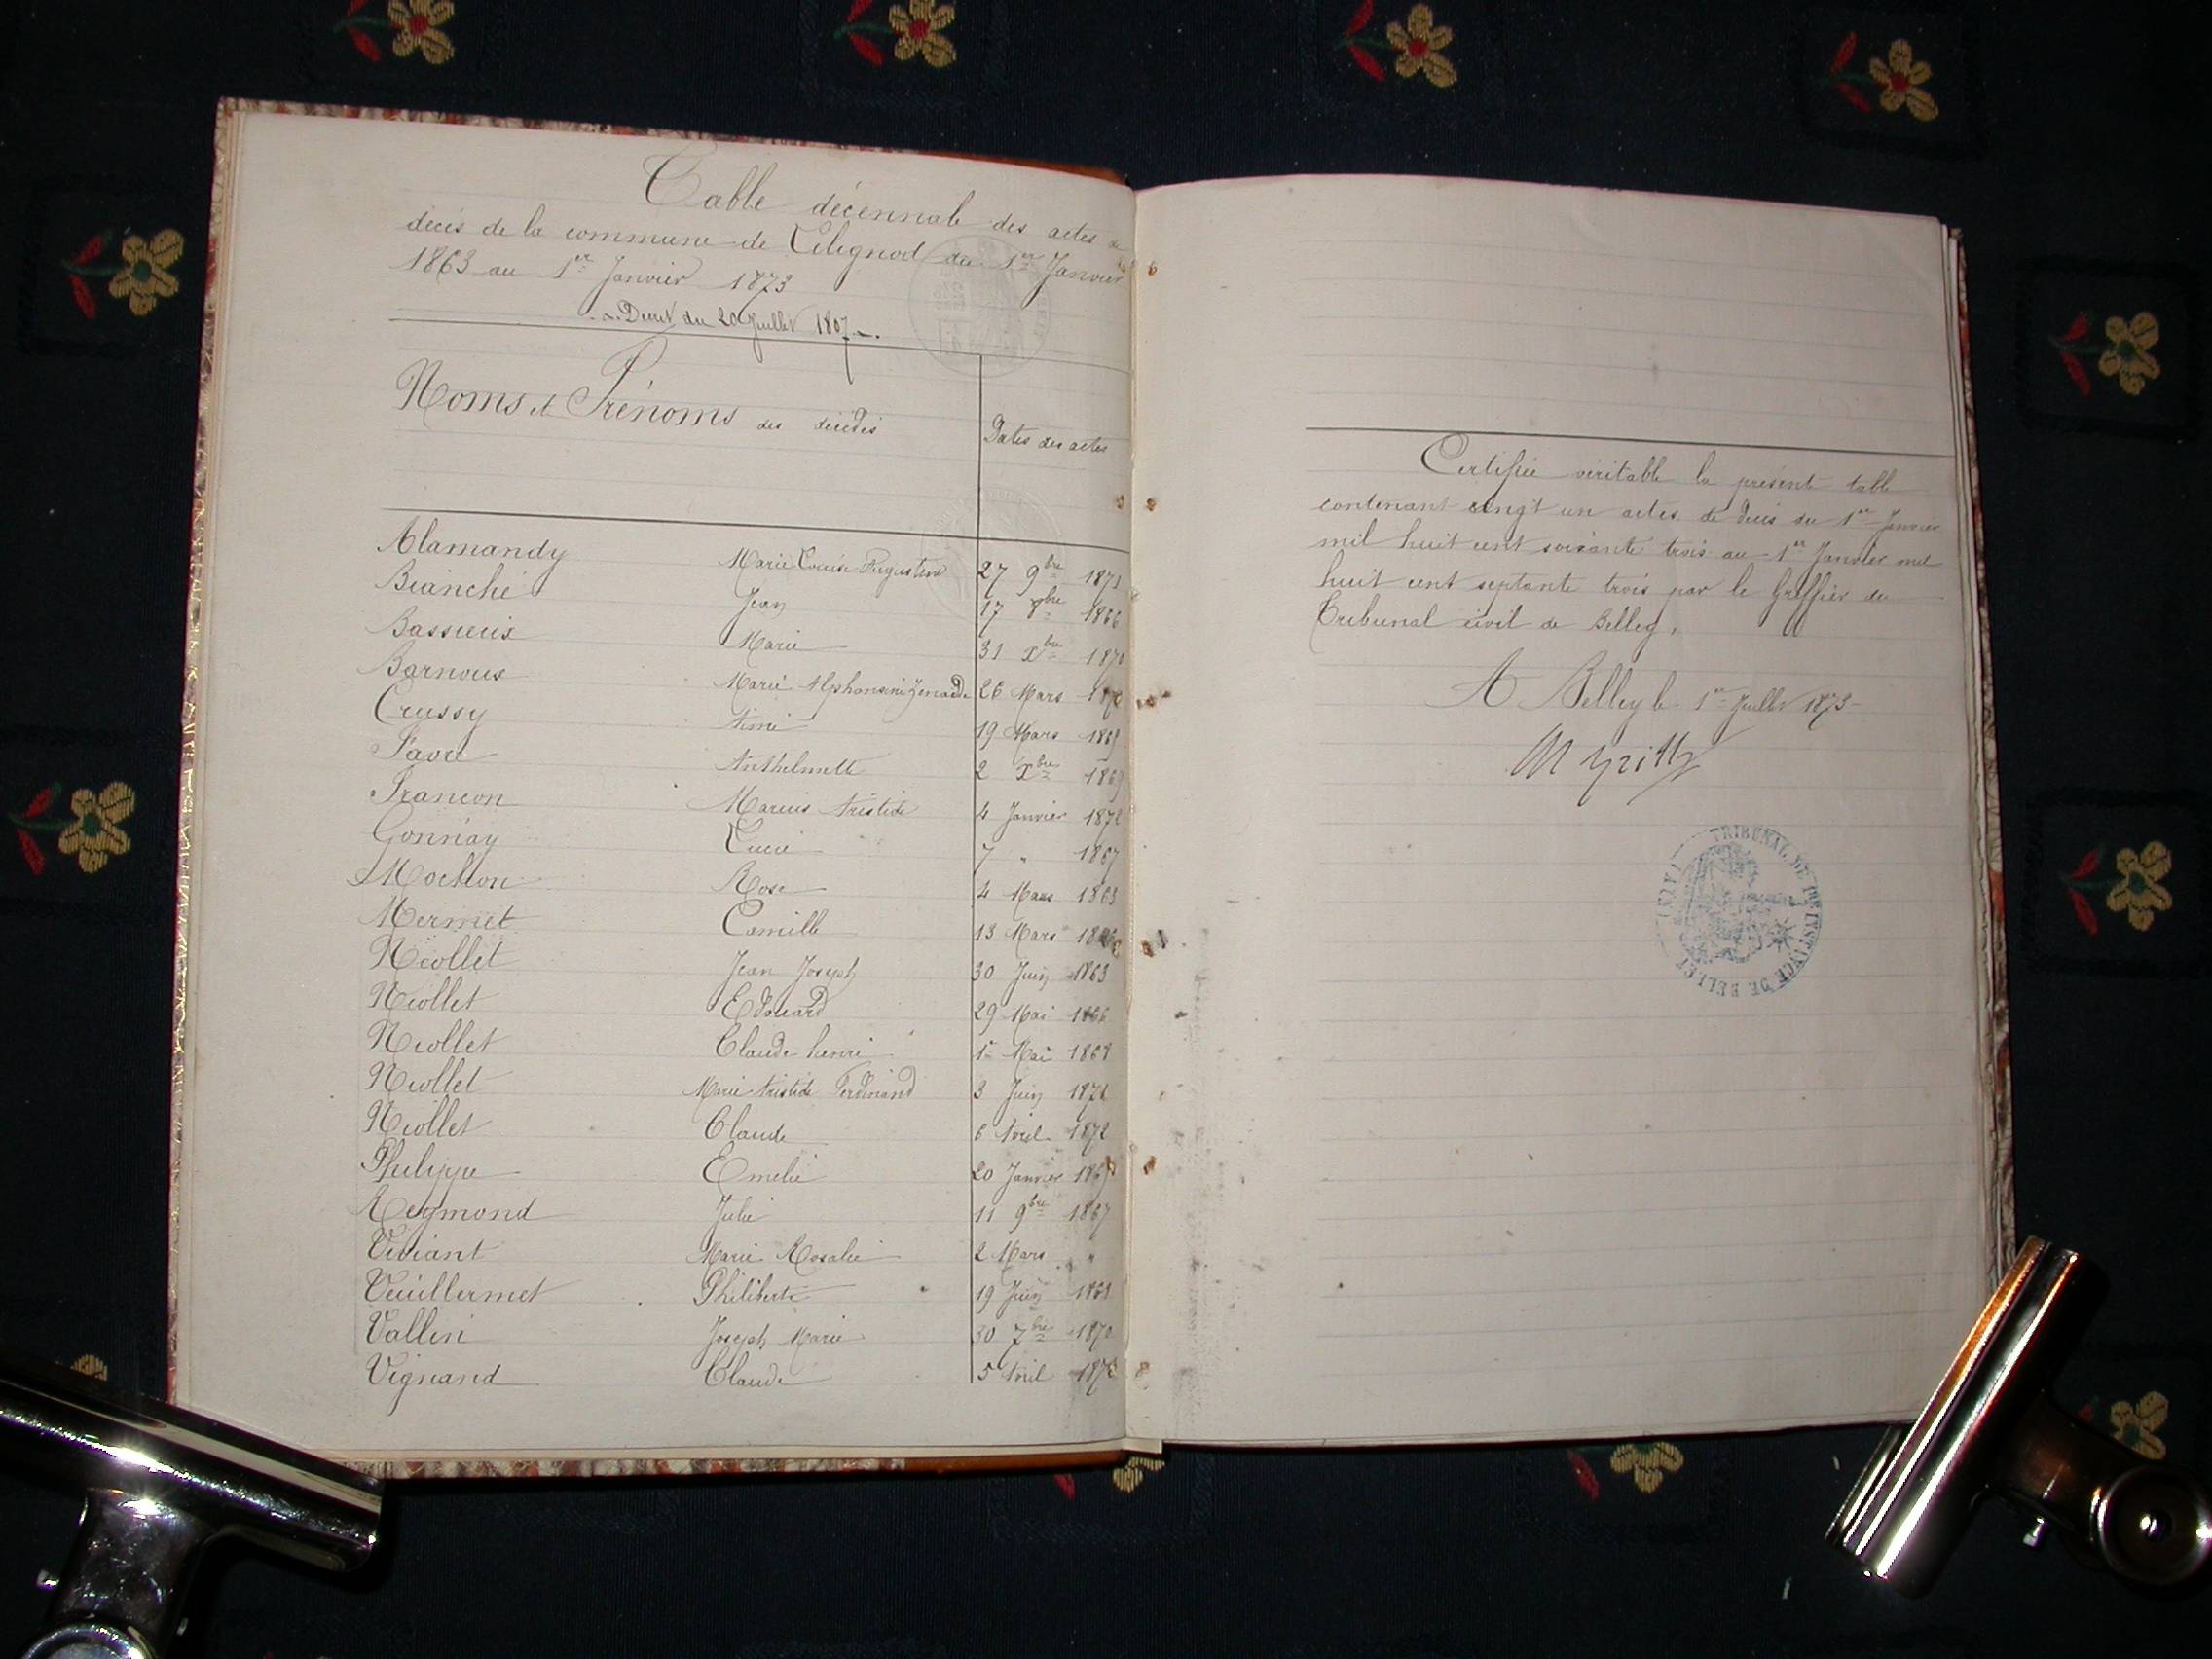 Table décennale des actes de
décès de la commune de Cleyzieu du 1er Janvier
1863 au 1er Janvier 1873
Décret du 20 Juillet 1807
Noms et Prénoms des décédés
Dates des actes
Alamandy Marie Louise Augustine 27 9bre 1871
Bianchi Jean 17 8bre 1866
Marie 31 Xbre 1870
Marie Alphonsine 26 Mars
Crussy Aimé 19 Mars 1869
Favre Anthelmette 2 Xbre 1869
Francon Marius Aristide 4 Janvier 1872
Gonnay Lucie 7 " 1867
Mochon Rose 4 Mars 1863
Mermet Camille 13 Mars
Niollet Jean Joseph 30 Juin 1863
Niollet Edouard 29 Mai 1866
Niollet Claude henri 1er Mai 1868
Niollet Marie Aristide Ferdinand 3 Juin 1871
Niollet Claude 6 Avril 1872
Philippe Emelie 20 Janvier
Reymond Julie 11 9bre 1867
Viviant Marie Rosalie 2 Mars "
Vuillermet Philiberte 19 Juin
Vallin Joseph Marie 30 7bre 1870
Vignand Claude 5 Avril
Certifiée véritable la présente table
contenant vingt un actes de décès du 1er Janvier
mil huit cent soixante trois au 1er Janvier mil
huit cent septante trois par le Greffier du
Tribunal civil de Belley.
A Belley le 1er Juillet 1873
TRIBUNAL DE 1RE INSTANCE DE BELLEY (AIN)